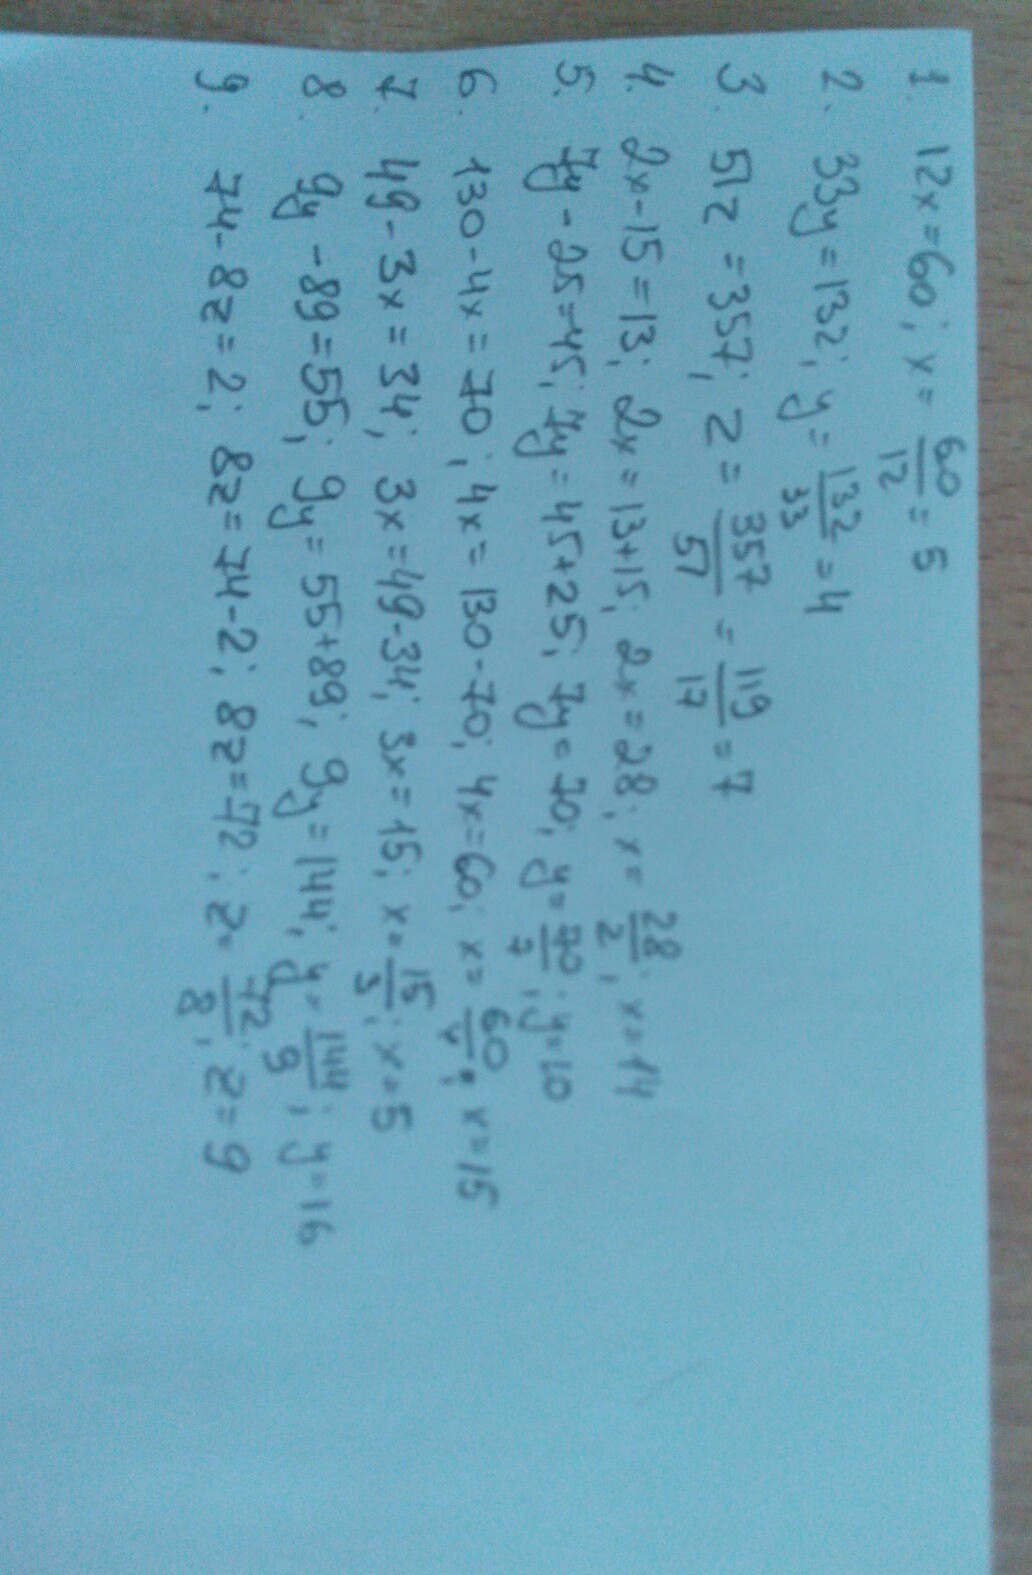 1. 12x=60; x=60/12=5
2. 33y=132; y=132/33=4
3. 51z=357; z=357/51=119/17=7
4. 2x-15=13; 2x=13+15; 2x=28; x=28/2; x=14
5. 7y-25=45; 7y=45+25; 7y=70; y=70/7; y=10
6. 130-4x=70; 4x=130-70; 4x=60; x=60/4; x=15
7. 49-3x=34; 3x=49-34; 3x=15; x=15/3; x=5
8. 9y-89=55; 9y=55+89; 9y=144; y=144/9; y=16
9. 74-8z=2; 8z=74-2; 8z=72; z=72/8; z=9